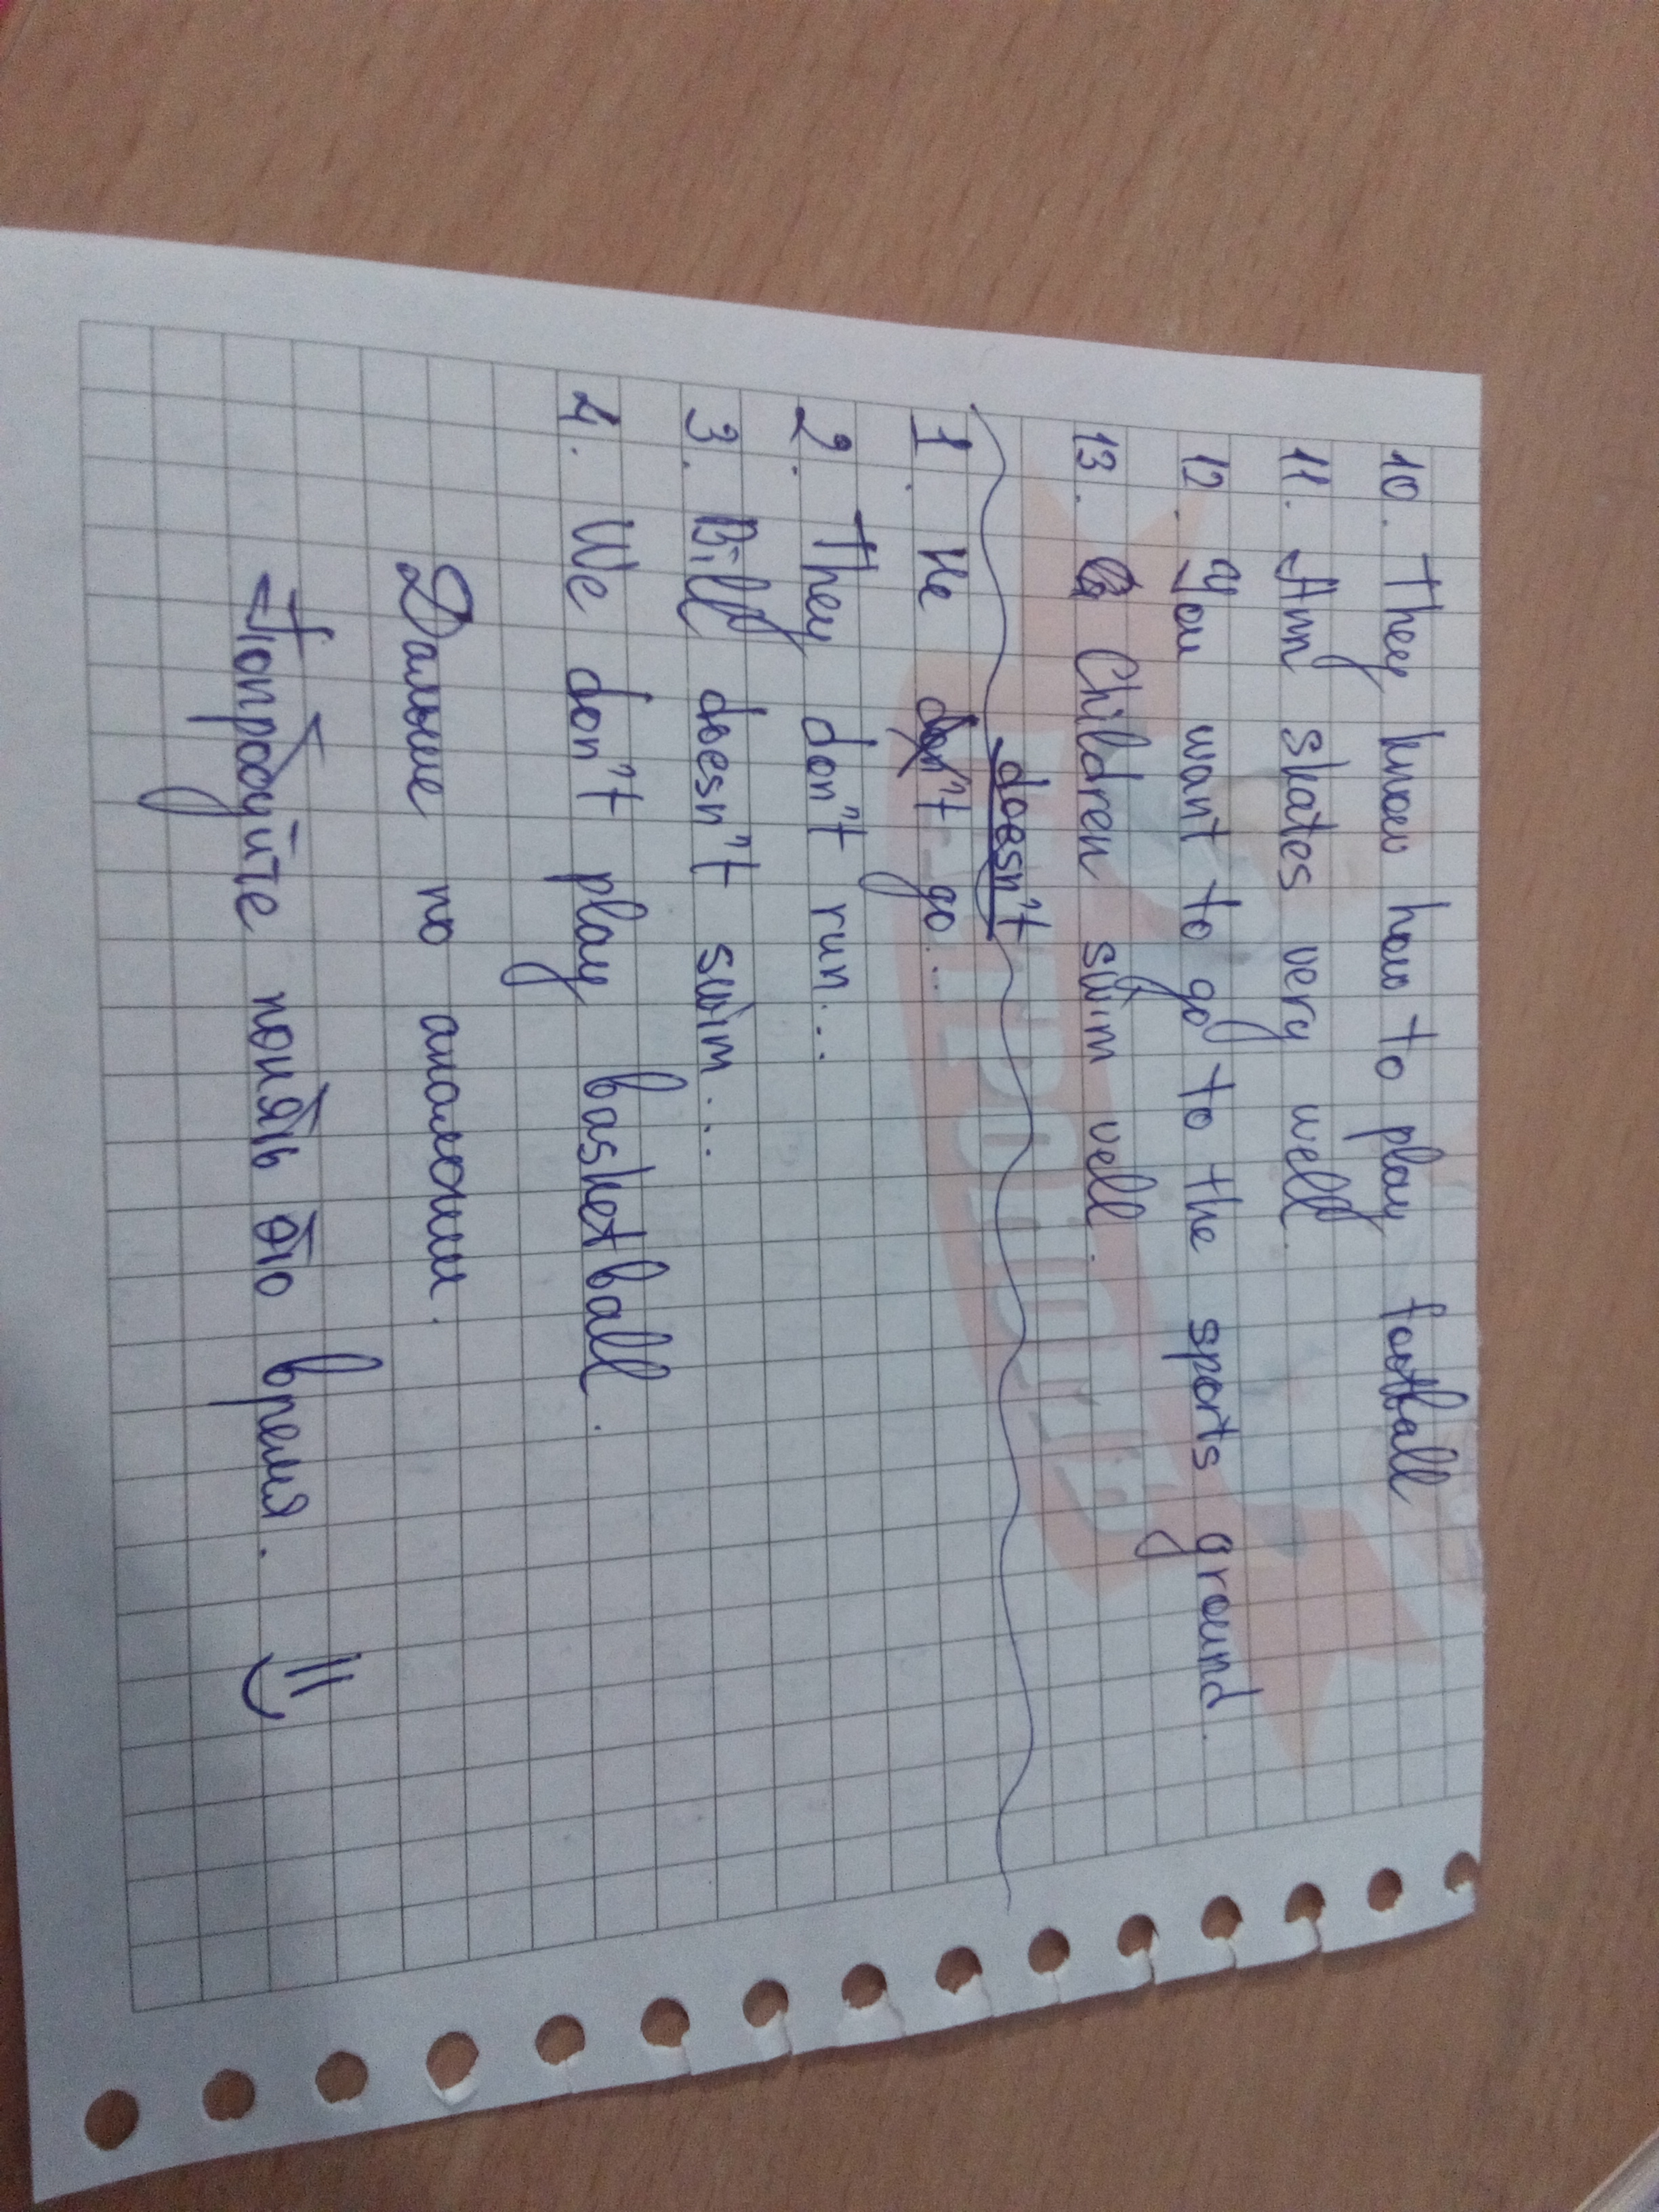 10. They know how to play football
11. Ann skates very well.
12. You want to go to the sports ground.
13. Children swim vell.
doesn't
1. He don't go...
2. They don't run...
3. Bill doesn't swim...
4. We don't play basketball.
Дальше по аналогии.
Попробуйте понять это время. =)